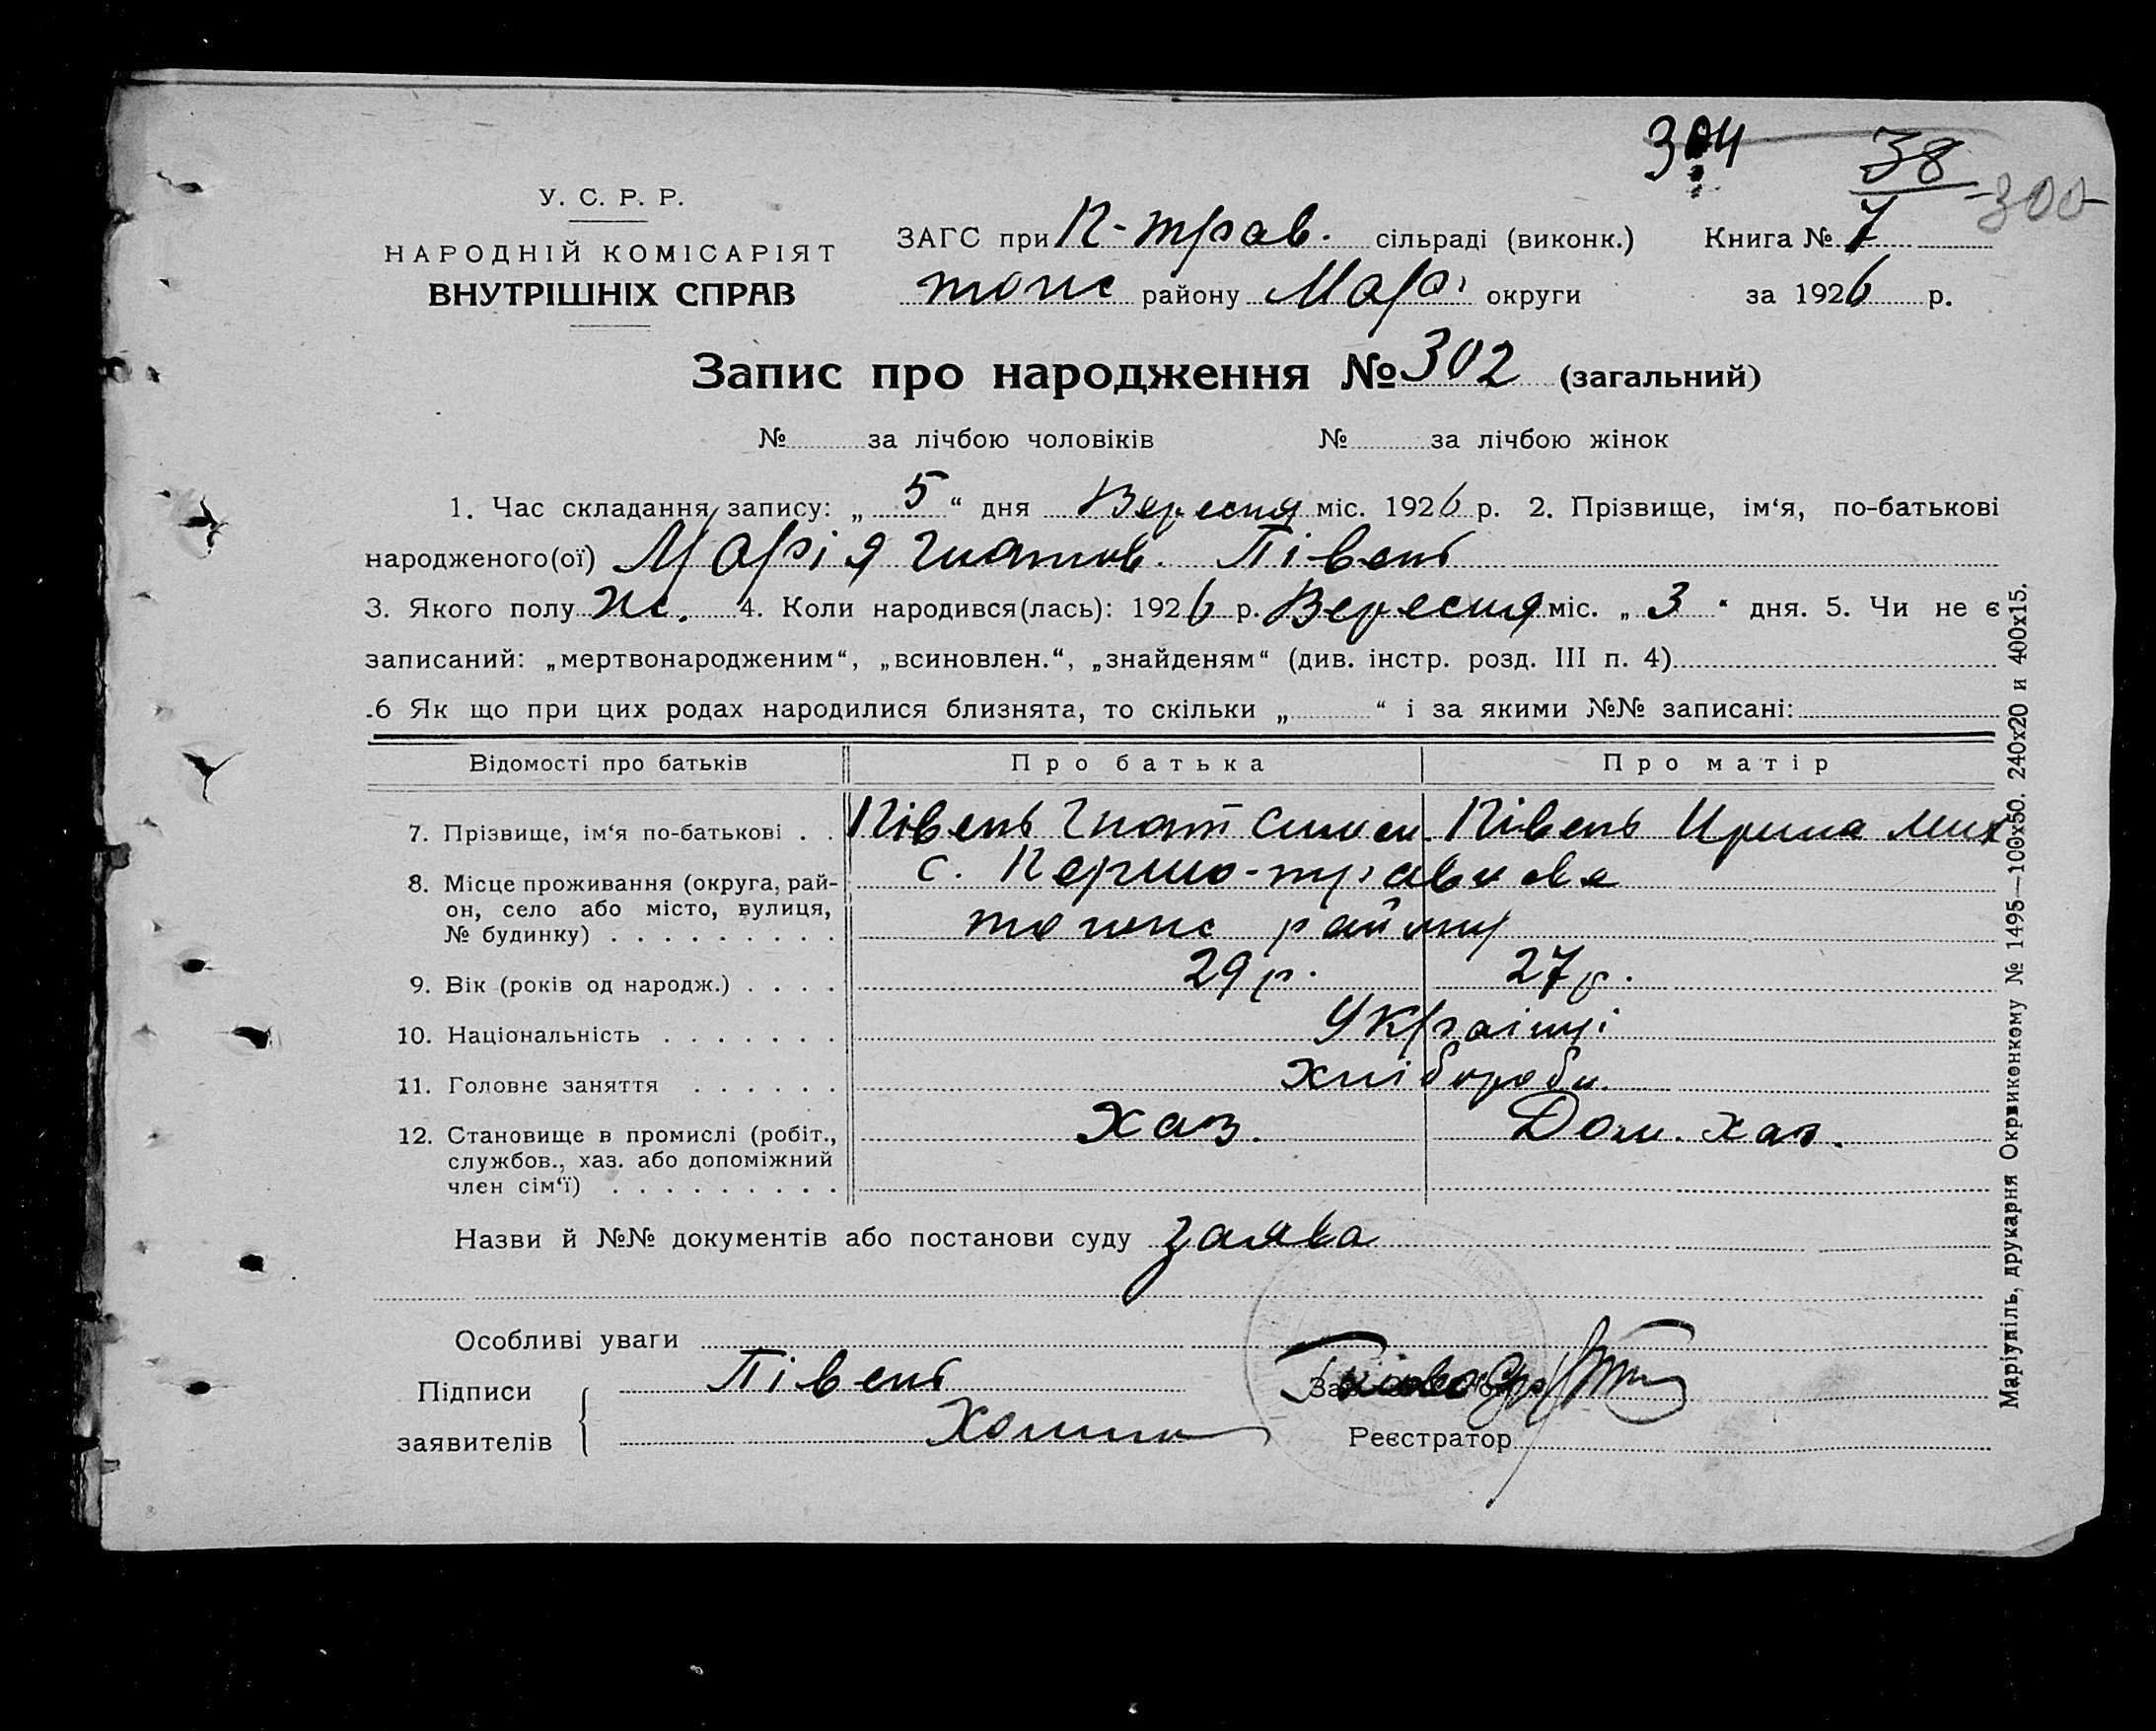 304
38
300
У. С. Р. Р.
НАРОДНІЙ КОМІСАРІЯТ
ВНУТРІШНІХ СПРАВ
ЗАГС при П-трав. сільраді (виконк.) Книга № 7
району Мар. округи за 1926 р.
Запис про народження № 302 (загальний)
№ за лічбою чоловіків № за лічбою жінок
1. Час складання запису: „ 5 “ дня Вересня міс. 1926 р. 2. Прізвище, ім‘я, по-батькові
народженого(ої) Марія Гнатов. Півень
3. Якого полу ж. 4. Коли народився(лась): 1926 р. Вересня міс. „ 3 “ дня. 5. Чи не є
записаний: „мертвонародженим“, „всиновлен.“, „знайденям“ (див. інстр. розд. III п. 4)
.6 Як що при цих родах народилися близнята, то скільки „ “ і за якими №№ записані:
Відомості про батьків Про батька Про матір
7. Прізвище, ім‘я по-батькові . . Півень Гнат Симон. Півень Ирина Мих
8. Місце проживання (округа, рай- с. Першо-травнева
он, село або місто, вулиця, району
№ будинку) . . . . . . . . .
9. Вік (років од народж.) . . . . 29 р. 27 р.
10. Національність . . . . . . . Українці
11. Головне заняття . . . . . . Хлібороби
12. Становище в промислі (робіт., Хаз. Дом. хаз.
службов., хаз. або допоміжний
член сім‘ї) . . . . . . . . .
Назви й №№ документів або постанови суду заява
Особливі уваги
Підписи Півень
заявителів Реєстратор
Маріупіль, друкарня Окрвиконкому № 1495—100х50. 240х20 и 400х15.